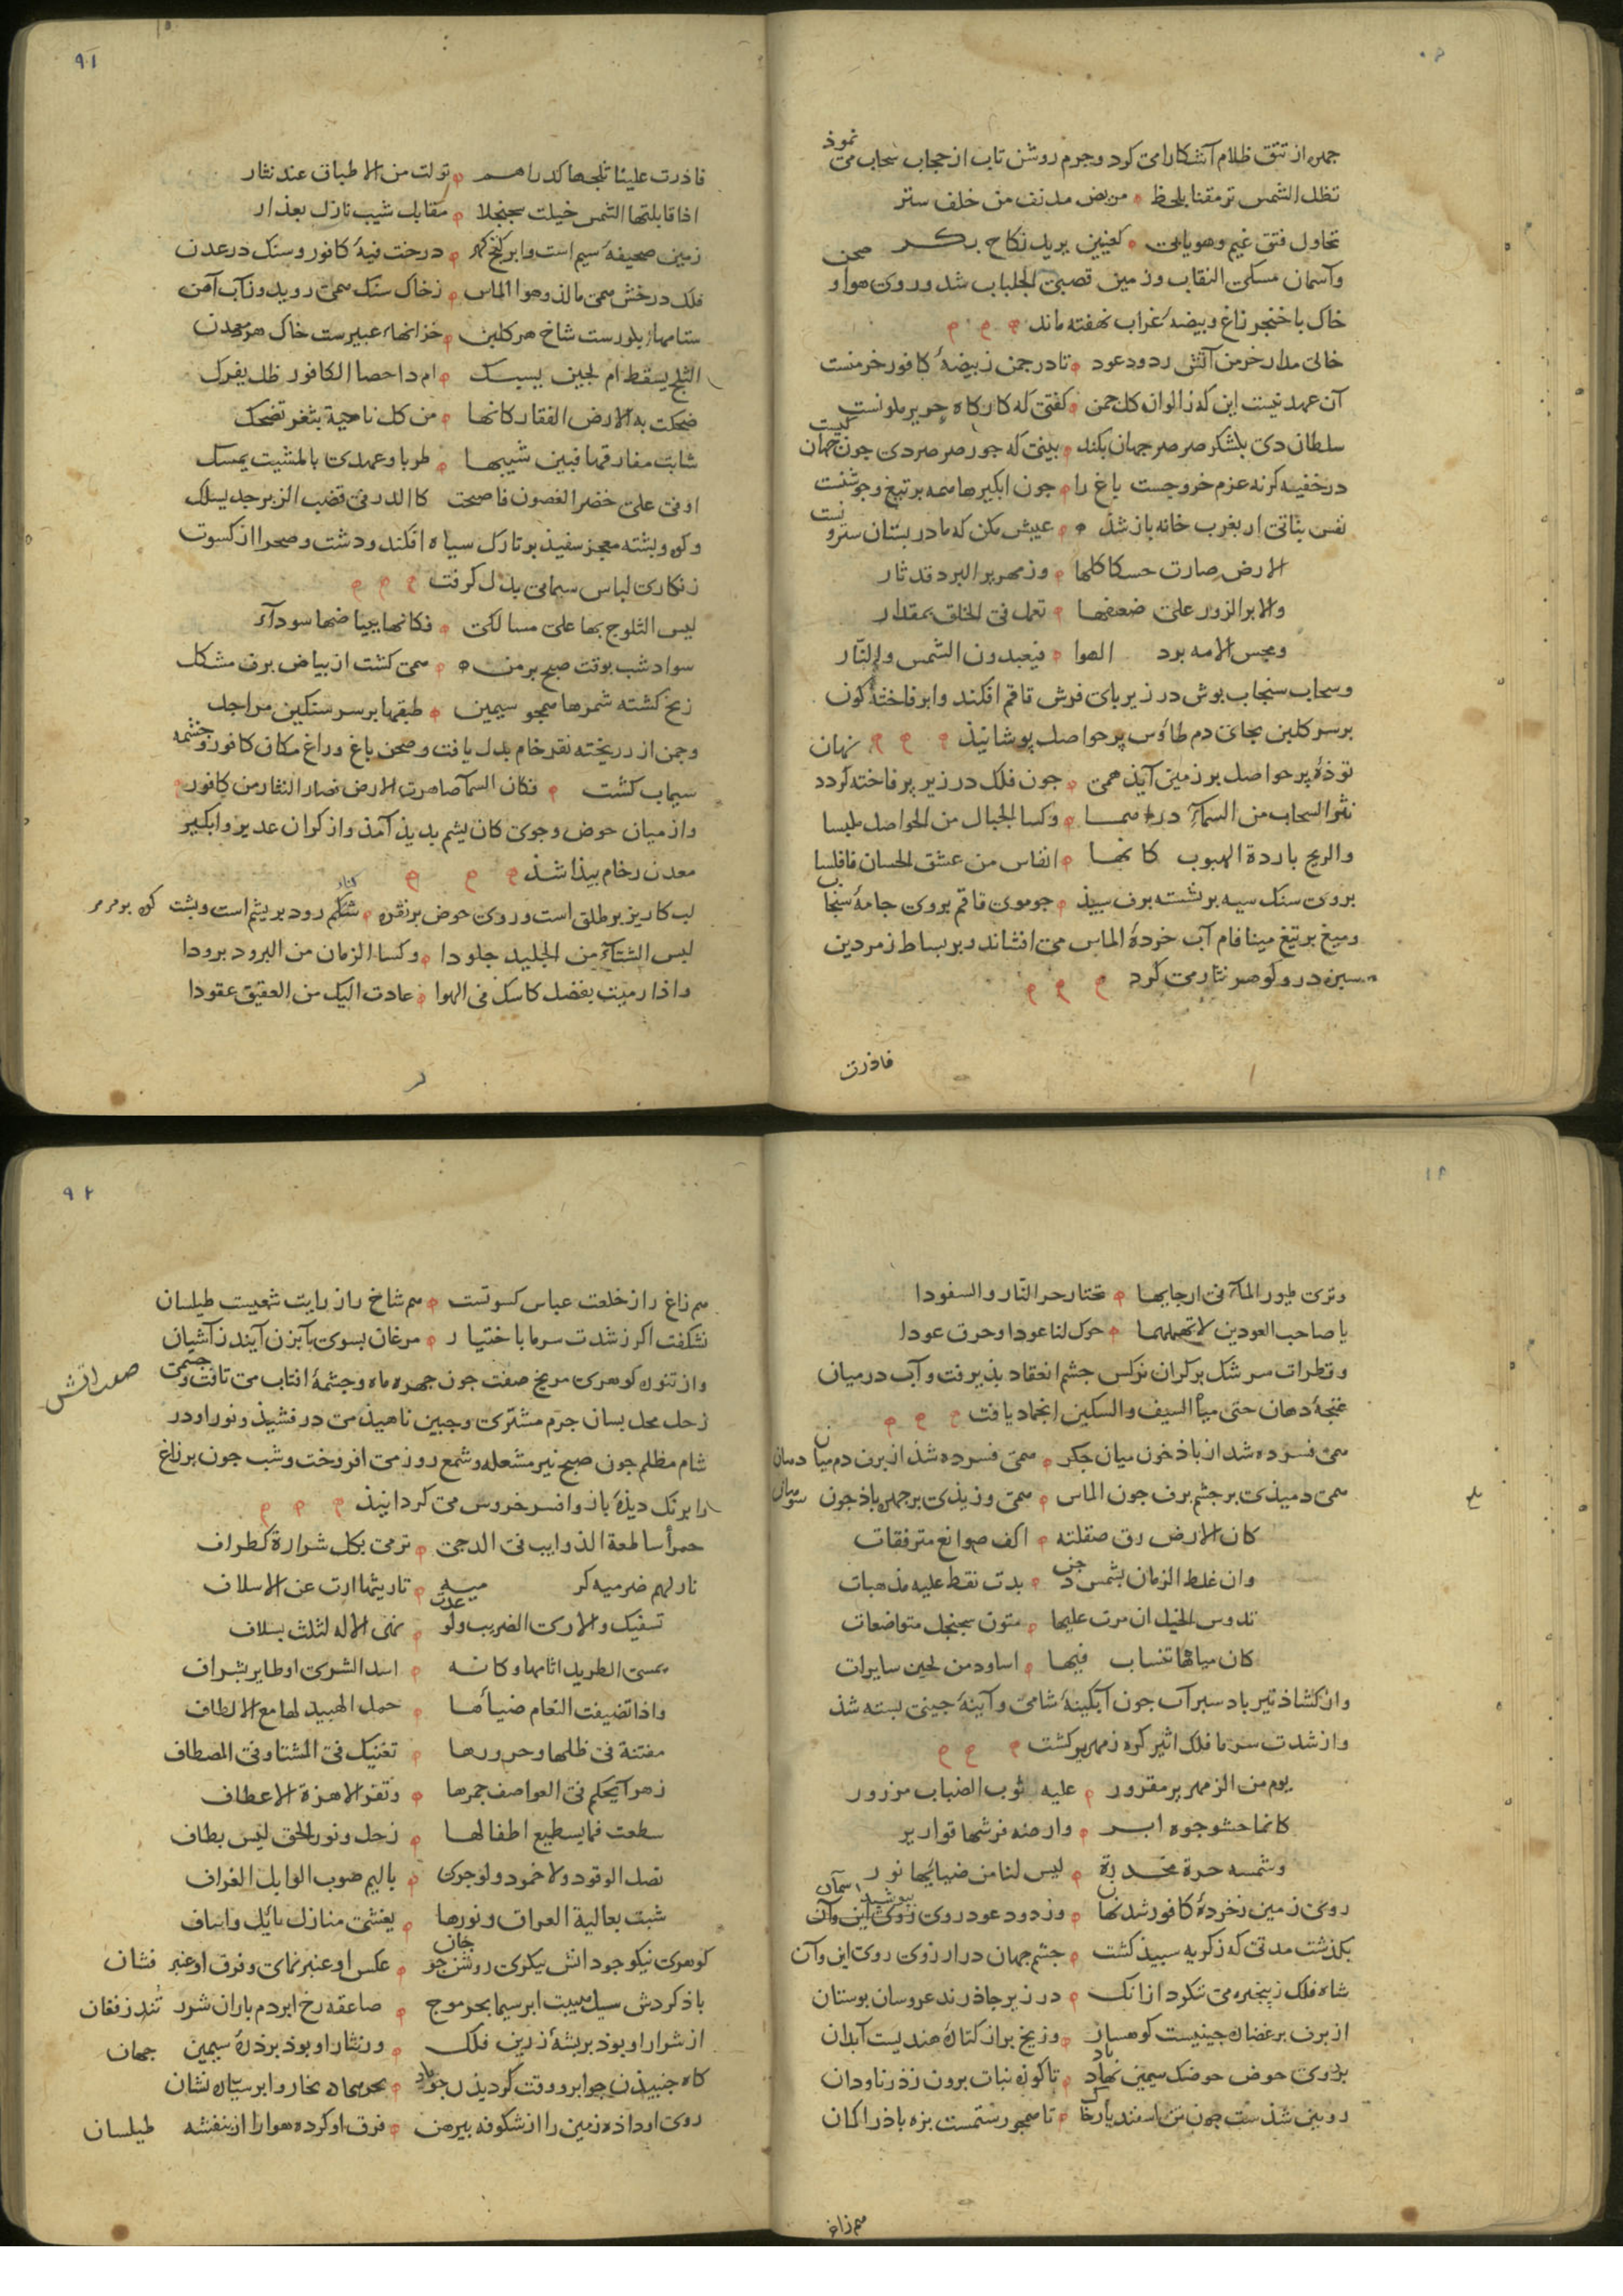 جهره از تتق ظلام آشكارا مى كرد وجرم روشن تاب از حجاب سحاب مى نموذ
تظل الشمس ترمقنا بلحظ مريض مدنف من خلف ستر
تحاول فتق غيم وهو يابى كعنين يريد نكاح بكر
وآسمان مسكى النقاب وزمين قصبى الجلباب شد وروى هوا و صحن
خاك با خنجر زاغ وبيضه غراب نهفته ماند
خالى مدار خرمن آتش ز دود عود تا در جمن ز بيضهٔ كافور خرمنست
آن عهد نيست اين كه ز الوان كل جمن كفتى كه كاركاه حرير ملونست
سلطان دى بلشكر صرصر جهان بكند بينى كه جور صرصر دى جون جهان كنيست
در خفيه كر نه عزم خروجست باغ را جون ابكيرها همه بر تيغ وجوشنست
نفس نباتى ار بغرب خانه باز شد عيبش مكن كه مادر بستان سترونست
الارض صارت حسكا كلها وزمهرير البرد قد ثار
والابر الزور على ضعفها تعمل فى الخلق بمقدار
ومجس الامه برد الهوا فيعبدون الشمس والنار
وسحاب سنجاب بوش در زير باى فرش قاقم افكند وابر فاختهٔ كون
بر سر كلبن بجاى دم طاؤس پر حواصل بوشانيذ
توذهٔ پر حواصل بر زمين آيذ همى جون فلك در زير پر فاخته كردد نهان
نثر السحاب من السماء دراهما وكسا الجبال من الحواصل ملبسا
والريح باردة الهبوب كانها انفاس من عشق الحسان فافلسا
بروى سنك سيه بر نشسته برف سپيذ جو موى قاقم بروى جامهٔ سنجاب
وميغ بر تيغ مينا فام آب خردهٔ الماس مى افشاند وبر بساط زمردين
سبزه در وكوهر نثار مى كرد
فاذرت
٩١
فاذرت علينا ثلجها كدراهم تولت من الاطباق عند نثار
اذا قابلتها الشمس خيلت سجنجلا مقابل شيب نازل بعذار
زمين صحيفهٔ سيم است وابر كنج كهر درخت فيهٔ كافور وسنك در عدن
فلك درخش همى مالذ وهوا الماس ز خاك سنك همى رويد وز آب آهن
ستامها ز بلورست شاخ هر كلبن خزانها عبيرست خاك هر معدن
الثلج يسقط ام لجين يسبك ام ذا حصا الكافور ظل يفرك
ضحكت به الارض الفقار كانها من كل ناحية بثغر تضحك
شابت مفارقها فبين شيبها طربا وعهدى بالمشيب يمسك
اوفى على خضر الغصون فاصبحت كالدر فى قضب الزبرجد يسلك
وكوه وبشته معجر سفيذ بر تارك سياه افكند ودشت وصحرا از كسوت
زنكارى لباس سيمابى بدل كرفت
ليس الثلوج بها على مسالكى فكانها ببياضها سودآء
سواد شب بوقت صبح بر من همى كشت از بياض برف مشكل
ز يخ كشته شمرها همجو سيمين طبقها بر سر سنكين مراجل
وجمن از دريخته نقره خام بدل يافت وصحن باغ وراغ مكان كافور وجشمه
سيماب كشت فكان السماء صاهرت الارض فصار النثار من كافور
واز ميان حوض وجوى كان يشم بديذ آمذ واز كران غدير وابكير
معدن رخام بيذا شذ
لب كاريز بر طلق است وروى حوض بر نقره شكم رود بر يشم است وبشت كوه بر مرمر
لبس الشتاء من الجليد جلودا وكسا الزمان من البرود برودا
واذا رميت بفضل كاسك فى الهوا عادت اليك من العقيق عقودا
وترى طيور الماء فى ارجايها تختار حر النار والسفودا
يا صاحب العودين لا تهملهما حرك لنا عودا وحرق عودا
وقطرات سرشك بر كران نركس جشم انعقاد بذيرفت وآب در ميان
غنجهٔ دهان حتى ميأ السيف والسكين انجماد يافت
همى فسرده شد از باذ خون ميان جكر همى فسرده شذ از برف دم ميان دهان
همى دميذى بر جشم برف جون الماس همى وزيذى بر جهره باذ جون سوهان
كان الارض رق صقلته اكف صوانع مترفقات
وان غلط الزمان بشمس دجن بدت نقط عليه مذهبات
تدوس الخيل ان مرت عليها متون سجنجل متواضعات
كان مياهها تنساب فيها اساود من لجين سايرات
واز كشاذ تير باد سبر آب جون آبكينهٔ شامى وآينهٔ جينى بسته شذ
واز شدت سرما فلك اثير كره زمهرير كشت
يوم من الزمهرير مقرور عليه ثوب الضباب مزرور
كانما حشو جوه ابر وارضه فرشها قوارير
وشمسه حرة مخدرة ليس لنا من ضيائها نور
روى زمين ز خردهٔ كافور شد نهان وز دود عود روى بپوشيد آسمان
بكذشت مدتى كه ز كريه سبيذ كشت جشم جهان در ارزوى روى اين وآن
شاه فلك ز پنجره مى نكرد ازانك در زير جاذرند عروسان بوستان
از برف برغضان جينيست كوهسار وز يخ بر از كتارهٔ هنديست آبدان
بر روى حوض حوضك سيمين نهاد باد تا كونه نبات برون زذ ز ناودان
رويين شذست جون تن اسفنديار خاك تا همجو رستمست بزه باذ را كمان
هم زاغ
٩٢
هم زاغ را ز خلعت عباس كسوتست هم شاخ را ز رايت شعيب طيلسان
نشكفت اكر ز شدت سرما باختيار مرغان بسوى بآبزن آيند ز آشيان
واز تنوره كوهرى مريخ صفت جون جهره ماه وجشمهٔ افتاب مى تافت وجسمى
صفت اتش
زحل محل بسان جرم مشترى وجبين ناهيذ مى درفشيذ ونور او در
شام مظلم جون صبح نير مشعله وشمع روز مى افروخت وشب جون پر زاغ
را برنك ديذهٔ باز وافسر خروس مى كردانيذ
حمرأ ساطعة الذوايب فى الدجى ترمى بكل شرارة كطراف
نار لهم ضرميه كرميه تاريثها ارث عن الاسلاف
تسقيك والارى الضريب ولو عدت نهى الاله لثلث بسلاف
يمسى الطريد اثامها وكانه اسد الشرى او طاير بشراف
واذا تضيفت النعام ضيأها حمل الهبيد لها مع الالطاف
مفتنة فى ظلها وحرورها تغنيك فى المشتا وفى المصطاف
زهرآ يحكم فى العواصف جمرها وتقر الا هزة الاعطاف
سطعت فما يسطيع اطفا لها زحل ونور الحق ليس بطاف
تصل الوقود ولا خمود ولو جرى باليم صوب الوابل الغراف
شبت بعالية العراق ونورها يغشى منازل نائل واساف
كوهرى نيكو جود اتش نيكوى روشن جو جان عكس او عنبر نماى وفرق او عنبر فشان
باذ كردش سيل هيبت ابر سيما بحر موج صاعقه رخ ابر دم باران شرر تندر فغان
از شرار او بوذ بر بشهٔ زرين فلك وز نثار او بوذ بر ذرهٔ سيمين جهان
كاه جنبيذن جو ابر ووقت كرديذن جو باد بحر سحاه بخار وابر سياه نشان
روى او داذه زمين را از شكوفه پيرهن فرق او كرده هوا را از بنفشه طيلسان